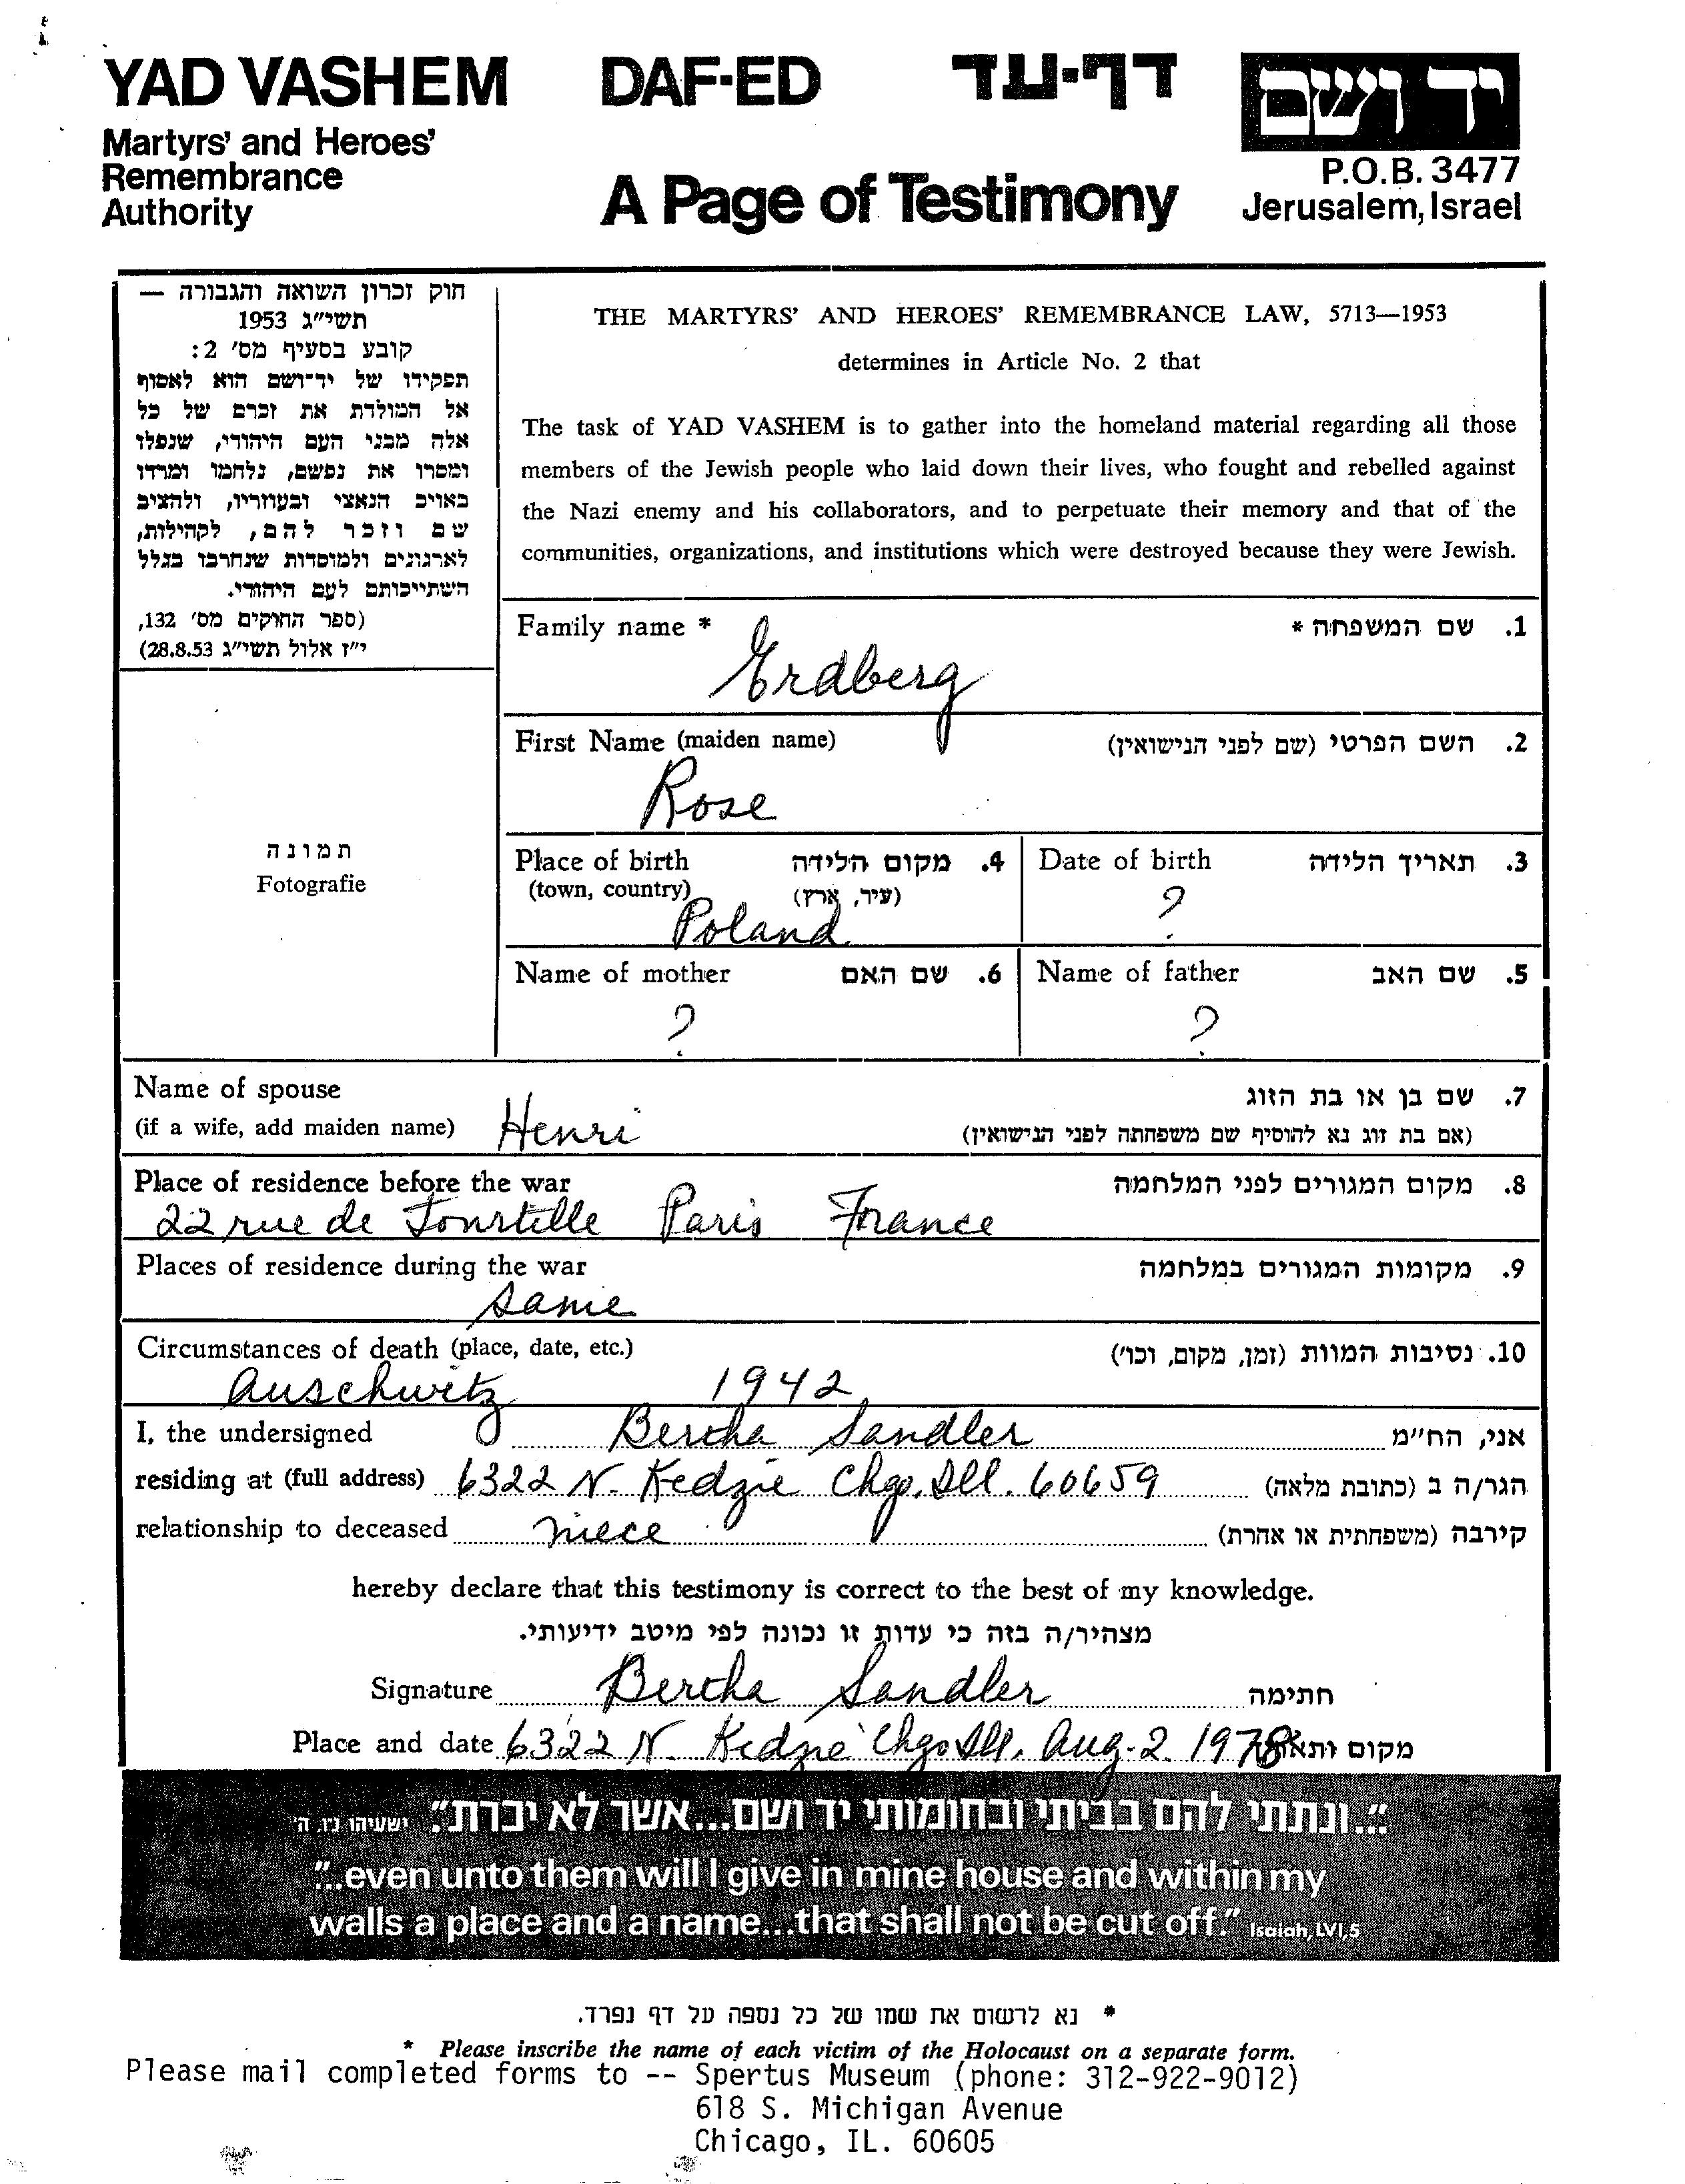 YAD VASHEM DAF-ED דף-עד יד ושם
Martyrs' and Heroes'
Remembrance
Authority
A Page of Testimony
P.O.B. 3477
Jerusalem, Israel
חוק זכרון השואה והגבורה —
תשי״ג 1953
קובע בסעיף מס׳ 2:
תפקידו של יד־ושם הוא לאסוף
אל המולדת את זכרם של כל
אלה מבני העם היהודי, שנפלו
ומסרו את נפשם, נלחמו ומרדו
באויב הנאצי ובעוזריו, ולהציב
שם וזכר להם, לקהילות,
לארגונים ולמוסדות שנחרבו בגלל
השתייכותם לעם היהודי.
(ספר החוקים מס׳ 132,
י״ז אלול תשי״ג 28.8.53)
THE MARTYRS' AND HEROES' REMEMBRANCE LAW, 5713—1953
determines in Article No. 2 that
The task of YAD VASHEM is to gather into the homeland material regarding all those
members of the Jewish people who laid down their lives, who fought and rebelled against
the Nazi enemy and his collaborators, and to perpetuate their memory and that of the
communities, organizations, and institutions which were destroyed because they were Jewish.
Family name * 1. שם המשפחה *
Erdberg
First Name (maiden name) 2. השם הפרטי (שם לפני הנישואין)
Rose
תמונה
Fotografie
Place of birth 4. מקום הלידה
(town, country) (עיר, ארץ)
Poland
Date of birth 3. תאריך הלידה
?
Name of mother 6. שם האם
?
Name of father 5. שם האב
?
Name of spouse 7. שם בן או בת הזוג
(if a wife, add maiden name) Henri (אם בת זוג נא להוסיף שם משפחתה לפני הנישואין)
Place of residence before the war 8. מקום המגורים לפני המלחמה
22 rue de Tourtille Paris France
Places of residence during the war 9. מקומות המגורים במלחמה
same
Circumstances of death (place, date, etc.) 10. נסיבות המוות (זמן, מקום, וכו׳)
Auschwitz 1942
I, the undersigned Bertha Sandler אני, הח״מ
residing at (full address) 6322 N. Kedzie Chgo. Ill. 60659 הגר/ה ב (כתובת מלאה)
relationship to deceased niece קירבה (משפחתית או אחרת)
hereby declare that this testimony is correct to the best of my knowledge.
מצהיר/ה בזה כי עדות זו נכונה לפי מיטב ידיעותי.
Signature Bertha Sandler חתימה
Place and date 6322 N. Kedzie Chgo Ill. Aug. 2. 1978 מקום ותאריך
״...ונתתי להם בביתי ובחומותי יד ושם...אשר לא יכרת״. ישעיהו נו, ה׳
"...even unto them will I give in mine house and within my
walls a place and a name...that shall not be cut off." Isaiah, LVI, 5
* נא לרשום את שמו של כל נספה על דף נפרד.
* Please inscribe the name of each victim of the Holocaust on a separate form.
Please mail completed forms to -- Spertus Museum (phone: 312-922-9012)
618 S. Michigan Avenue
Chicago, IL. 60605